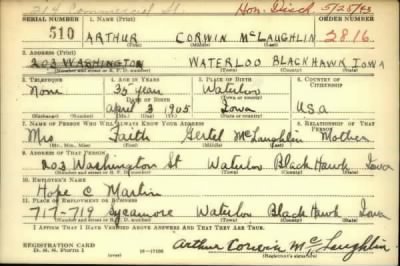 214 Commercial St. Hon. Disch. 5/25/43
SERIAL NUMBER 1. NAME (Print) ORDER NUMBER
510 ARTHUR CORWIN MCLAUGHLIN 2816.
(First) (Middle) (Last)
2. ADDRESS (Print)
203 WASHINGTON WATERLOO BLACKHAWK IOWA
(Number and street or R. F. D. number) (Town) (County) (State)
3. TELEPHONE 4. AGE IN YEARS 5. PLACE OF BIRTH 6. COUNTRY OF CITIZENSHIP
None 35 year Waterloo
DATE OF BIRTH
April 3 1905 Iowa USA
(Mo.) (Day) (Yr.) (State or country)
7. NAME OF PERSON WHO WILL ALWAYS KNOW YOUR ADDRESS 8. RELATIONSHIP OF THAT PERSON
Mrs Faith Gertel McLaughlin Mother
(Mr., Mrs., Miss) (First) (Middle) (Last)
9. ADDRESS OF THAT PERSON
203 Washington St Waterloo Black Hawk Iowa
(Number and street or R. F. D. number) (Town) (County) (State)
10. EMPLOYER'S NAME
Hope C Martin
11. PLACE OF EMPLOYMENT OR BUSINESS
717-719 Sycamore Waterloo Black Hawk Iowa
(Number and street or R. F. D. number) (Town) (County) (State)
I AFFIRM THAT I HAVE VERIFIED ABOVE ANSWERS AND THAT THEY ARE TRUE.
REGISTRATION CARD
D. S. S. Form 1 16-17105 Arthur Corwin McLaughlin
(Registrant's signature)